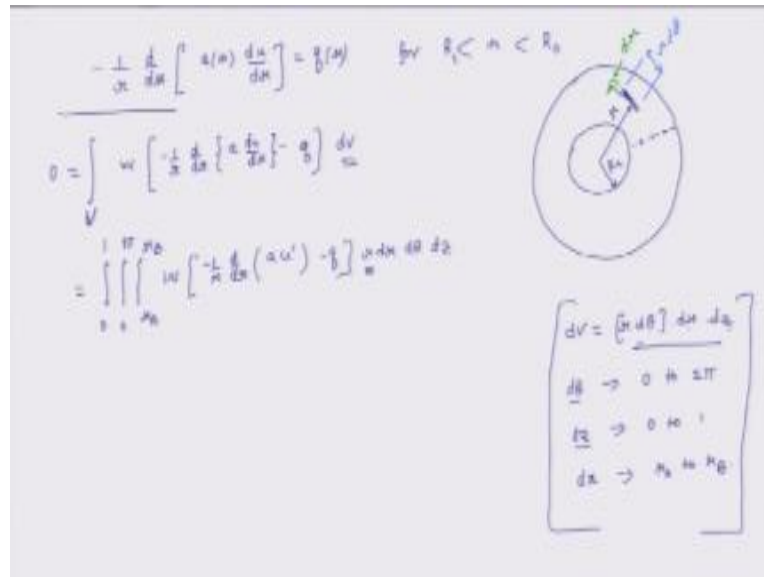 - 1/r d/dr [ a(r) du/dr ] = q(r) for R_i < r < R_o
0 = ∫_V w [ -1/r d/dr { a du/dr } - q ] dV
= ∫_0^1 ∫_0^π ∫_{r_A}^{r_B} w [ -1/r d/dr ( a u' ) - q ] r dr dθ dz
dr
r dθ
r
dV = [r dθ] dr dz
dθ → 0 to 2π
dz → 0 to 1
dr → r_A to r_B